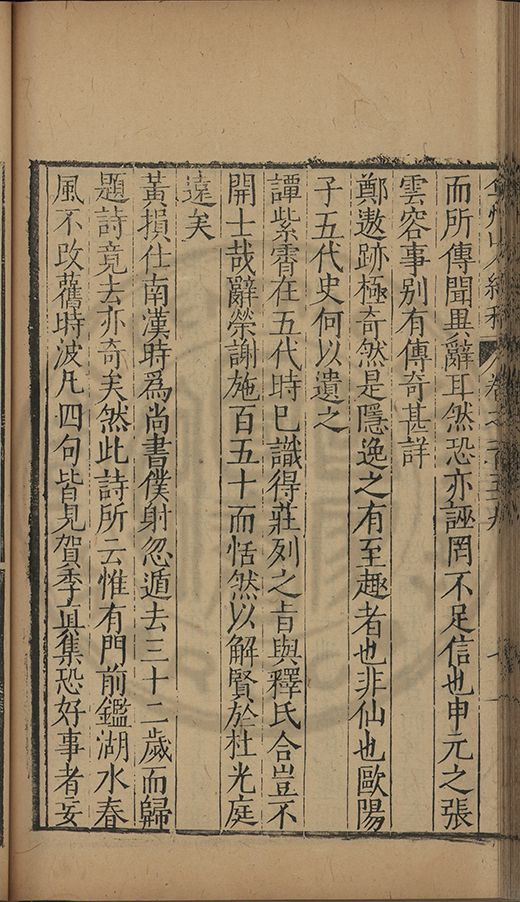 而所傳聞異辭耳然恐亦誣罔不足信也申元之張
雲容事别有傳奇甚詳
鄭遨跡極奇然是隱逸之有至趣者也非仙也歐陽
子五代史何以遺之
譚紫霄在五代時已識得莊列之旨與釋氏合豈不
開士哉辭榮謝施百五十而恬然以解賢於杜光庭
遠矣
黃損仕南漢時爲尚書僕射忽遁去三十二歲而歸
題詩竟去亦奇矣然此詩所云惟有門前鑑湖水春
風不改舊時波凡四句皆見賀季眞集恐好事者妄